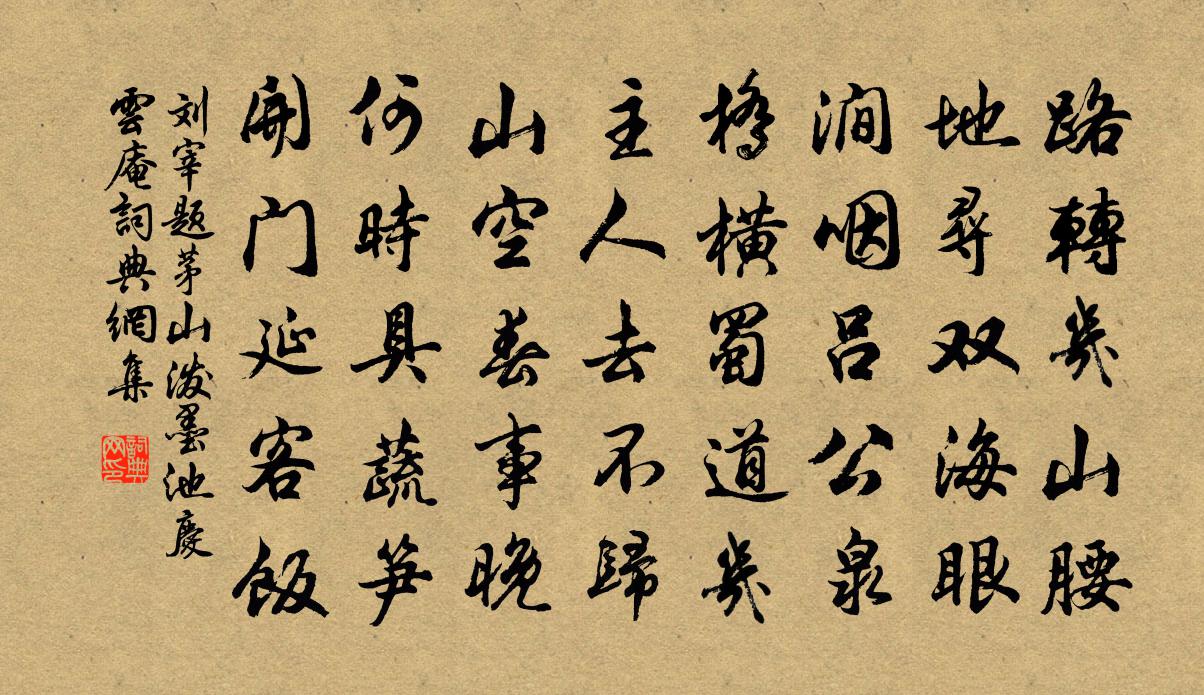 路轉幾山腰
地尋双海眼
澗咽呂公泉
橋橫蜀道幾
主人去不歸
山空春事晚
何時具蔬笋
開门延客飯
刘宰题茅山泼墨池慶
雲庵詞典網集
詞典网印